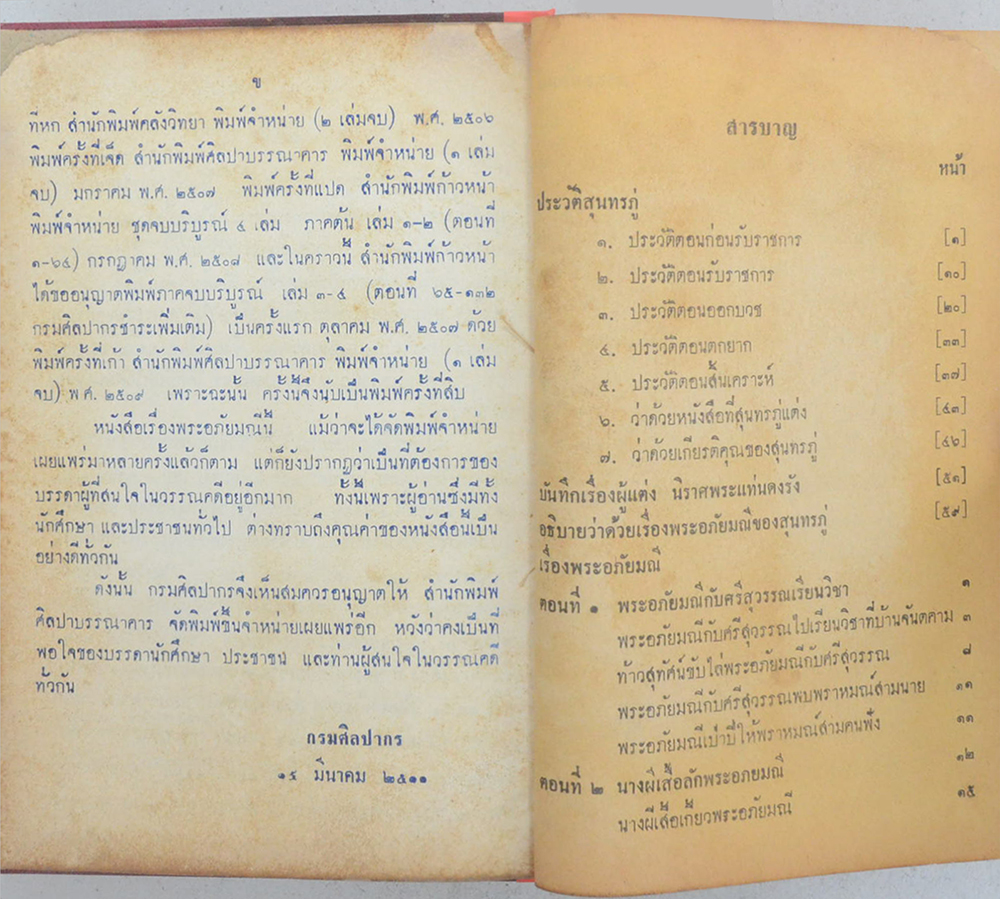 ข
ที่หก สำนักพิมพ์คลังวิทยา พิมพ์จำหน่าย (๒ เล่มจบ) พ.ศ. ๒๕๐๖
พิมพ์ครั้งที่เจ็ด สำนักพิมพ์ศิลปาบรรณาคาร พิมพ์จำหน่าย (๑ เล่ม
จบ) มกราคม พ.ศ. ๒๕๐๗ พิมพ์ครั้งที่แปด สำนักพิมพ์ก้าวหน้า
พิมพ์จำหน่าย ชุดจบบริบูรณ์ ๔ เล่ม ภาคต้น เล่ม ๑-๒ (ตอนที่
๑-๖๔) กรกฎาคม พ.ศ. ๒๕๐๗ และในคราวนี้ สำนักพิมพ์ก้าวหน้า
ได้ขออนุญาตพิมพ์ภาคจบบริบูรณ์ เล่ม ๓-๔ (ตอนที่ ๖๕-๑๓๒
กรมศิลปากรชำระเพิ่มเติม) เป็นครั้งแรก ตุลาคม พ.ศ. ๒๕๐๗ ด้วย
พิมพ์ครั้งที่เก้า สำนักพิมพ์ศิลปาบรรณาคาร พิมพ์จำหน่าย (๑ เล่ม
จบ) พ.ศ. ๒๕๐๙ เพราะฉะนั้น ครั้งนี้จึงนับเป็นพิมพ์ครั้งที่สิบ
หนังสือเรื่องพระอภัยมณีนี้ แม้ว่าจะได้จัดพิมพ์จำหน่าย
เผยแพร่มาหลายครั้งแล้วก็ตาม แต่ก็ยังปรากฏว่าเป็นที่ต้องการของ
บรรดาผู้ที่สนใจในวรรณคดีอยู่อีกมาก ทั้งนี้เพราะผู้อ่านซึ่งมีทั้ง
นักศึกษา และประชาชนทั่วไป ต่างทราบถึงคุณค่าของหนังสือนี้เป็น
อย่างดีทั่วกัน
ดังนั้น กรมศิลปากรจึงเห็นสมควรอนุญาตให้ สำนักพิมพ์
ศิลปาบรรณาคาร จัดพิมพ์ขึ้นจำหน่ายเผยแพร่อีก หวังว่าคงเป็นที่
พอใจของบรรดานักศึกษา ประชาชน และท่านผู้สนใจในวรรณคดี
ทั่วกัน
กรมศิลปากร
๑๕ มีนาคม ๒๕๑๑
สารบาญ
หน้า
ประวัติสุนทรภู่
๑. ประวัติตอนก่อนรับราชการ [๑]
๒. ประวัติตอนรับราชการ [๑๐]
๓. ประวัติตอนออกบวช [๒๐]
๔. ประวัติตอนตกยาก [๓๓]
๕. ประวัติตอนสิ้นเคราะห์ [๓๗]
๖. ว่าด้วยหนังสือที่สุนทรภู่แต่ง [๔๓]
๗. ว่าด้วยเกียรติคุณของสุนทรภู่ [๔๖]
บันทึกเรื่องผู้แต่ง นิราศพระแท่นดงรัง [๕๑]
อธิบายว่าด้วยเรื่องพระอภัยมณีของสุนทรภู่ [๕๙]
เรื่องพระอภัยมณี
ตอนที่ ๑ พระอภัยมณีกับศรีสุวรรณเรียนวิชา ๑
พระอภัยมณีกับศรีสุวรรณไปเรียนวิชาที่บ้านจันตคาม ๓
ท้าวสุทัศน์ขับไล่พระอภัยมณีกับศรีสุวรรณ ๘
พระอภัยมณีกับศรีสุวรรณพบพราหมณ์สามนาย ๑๑
พระอภัยมณีเป่าปี่ให้พราหมณ์สามคนฟัง ๑๑
ตอนที่ ๒ นางผีเสื้อลักพระอภัยมณี ๑๒
นางผีเสื้อเกี้ยวพระอภัยมณี ๑๕